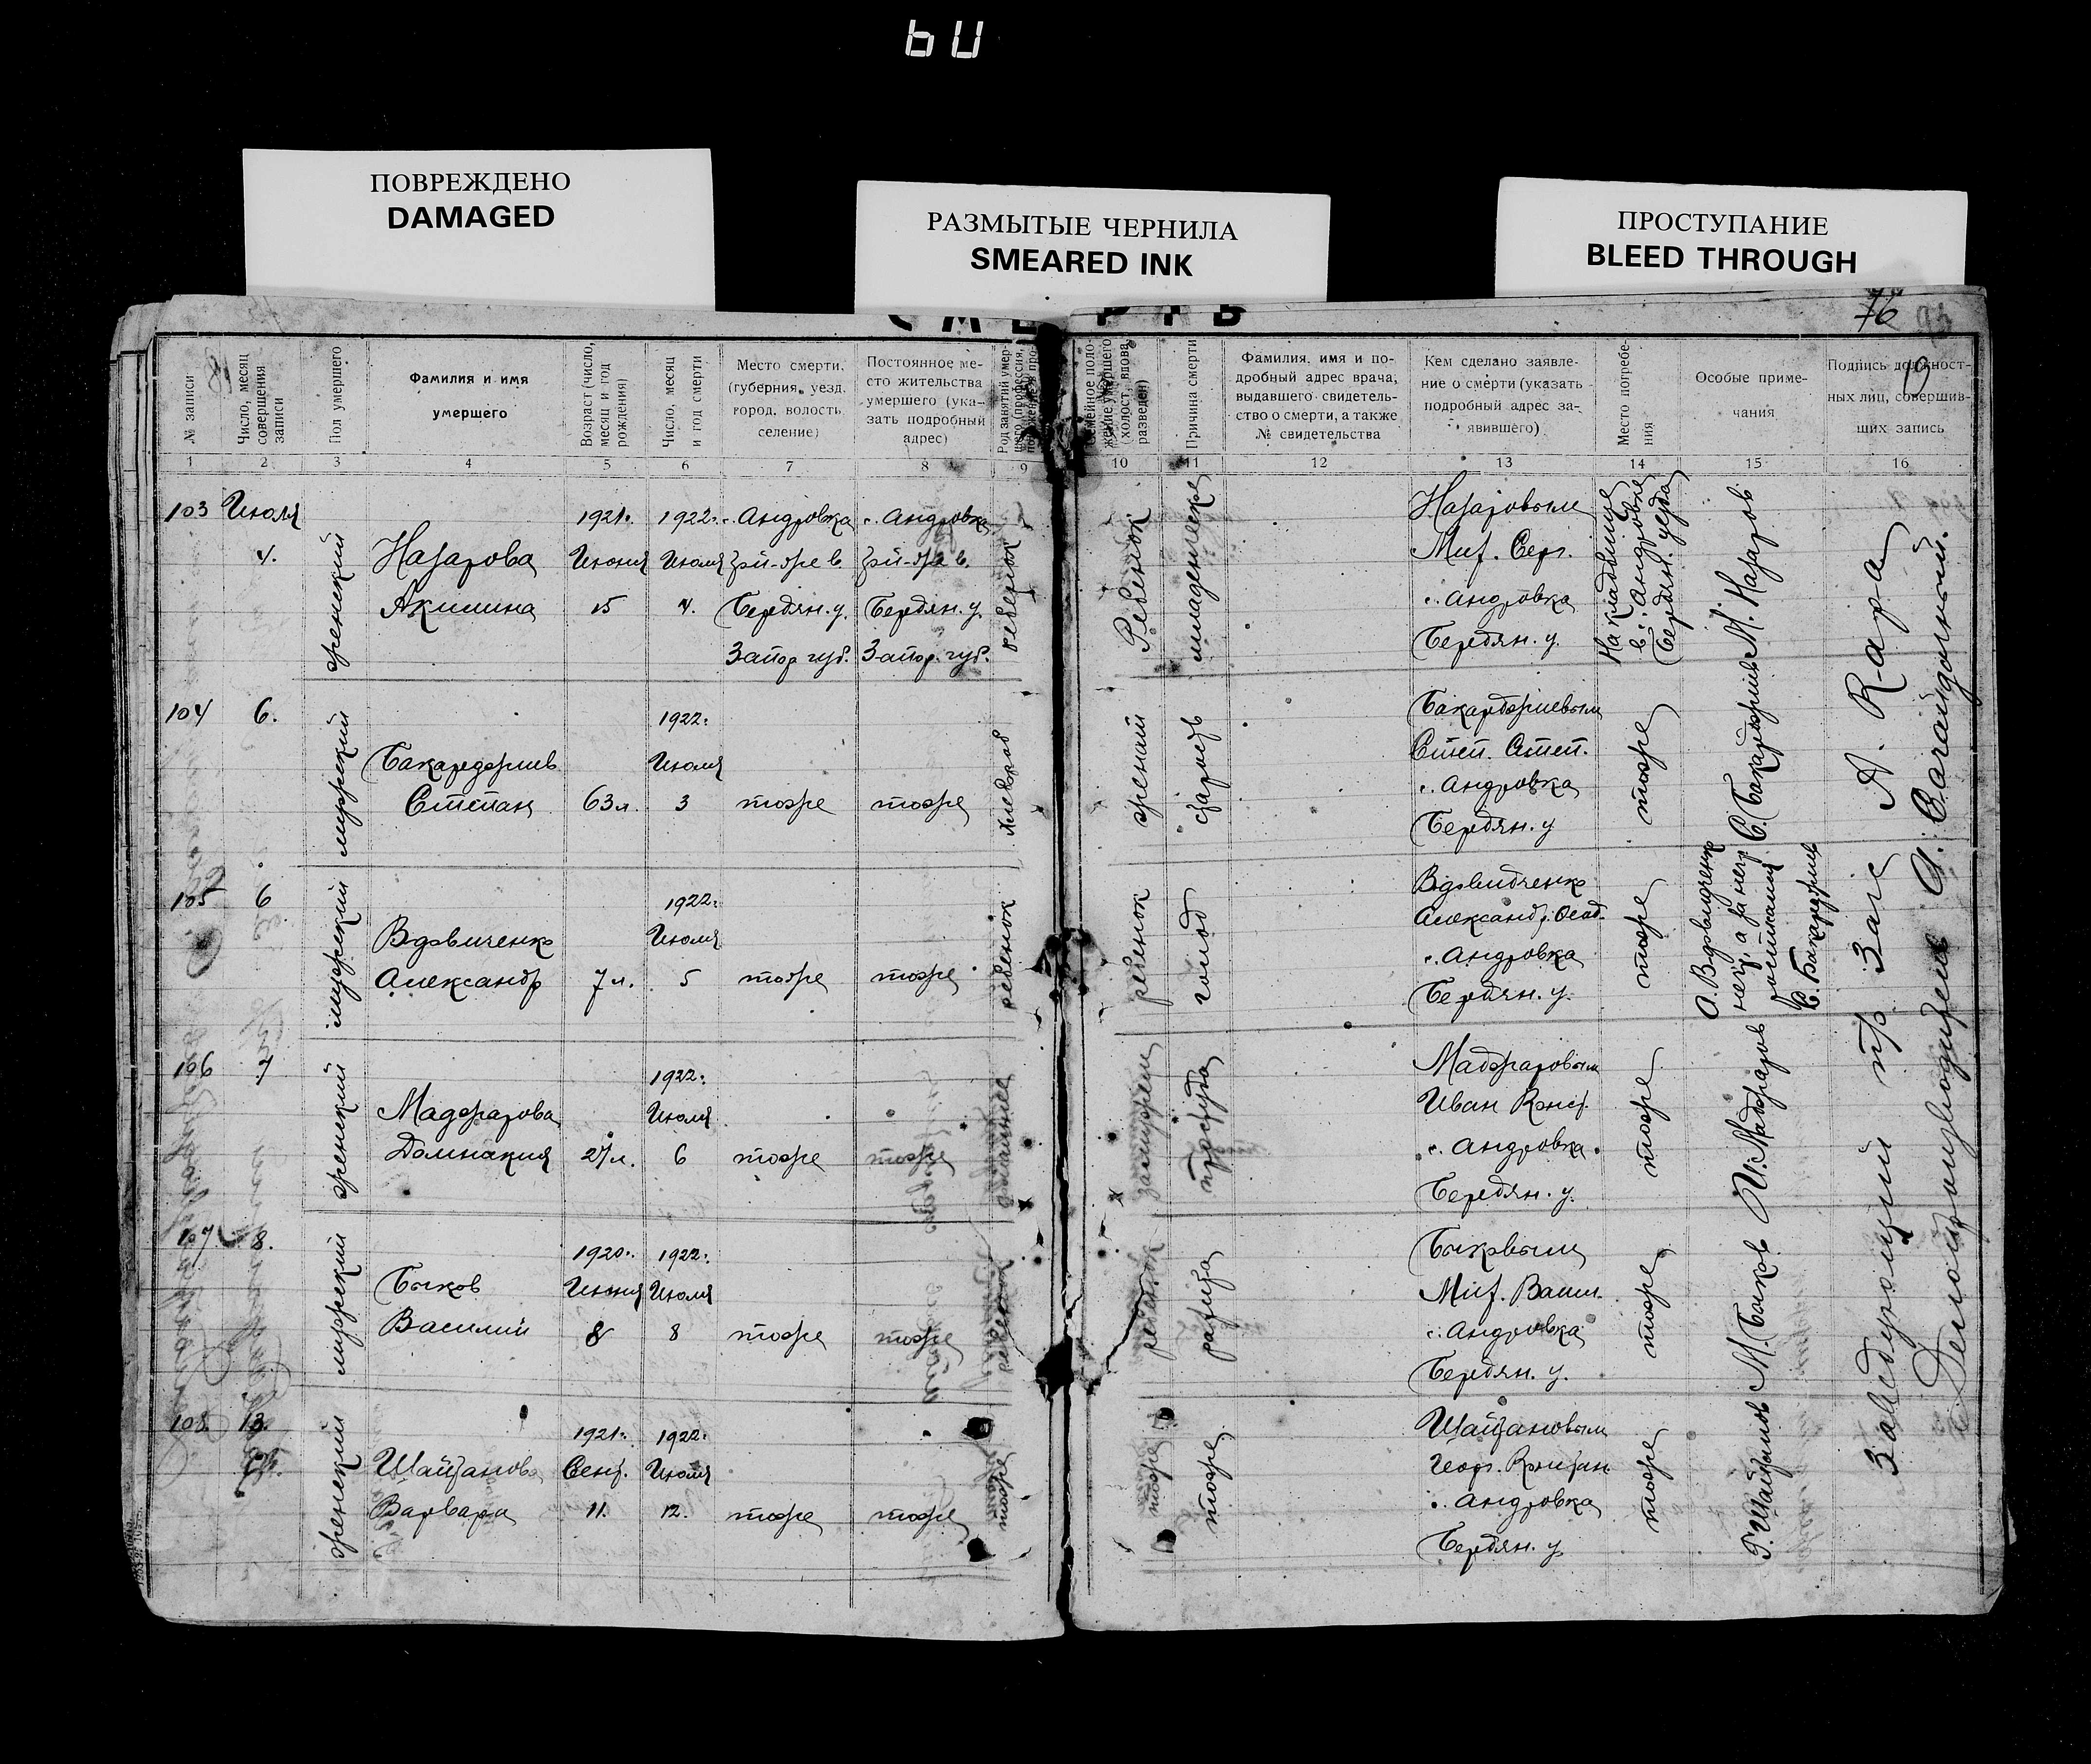 ПОВРЕЖДЕНО
DAMAGED
РАЗМЫТЫЕ ЧЕРНИЛА
SMEARED INK
ПРОСТУПАНИЕ
BLEED THROUGH
76
№ записи
Число, месяц совершения записи
Пол умершего
Фамилия и имя
умершего
Возраст (число, месяц и год рождения)
Число, месяц и год смерти
Место смерти,
(губерния, уезд,
город, волость
селение)
Постоянное ме-
сто жительства
умершего (ука-
зать подробный
адрес)
(холост, вдова, разведен)
Причина смерти
Фамилия, имя и по-
дробный адрес врача,
выдавшего свидетель-
ство о смерти, а также
№ свидетельства
Кем сделано заявле-
ние о смерти (указать
подробный адрес за-
явившего)
Место погребе-
ния
Особые приме-
чания
Подпись должност-
ных лиц, совершив-
ших запись
1 2 3 4 5 6 7 8 9 10 11 12 13 14 15 16
103 Июля
4.
женский
Назарова
Акилина
1921г.
Июня
15
1922г.
Июля
4.
с. Андровка
Бердян. у.
Запор. губ.
с. Андровка
Бердян. у.
Запор. губ.
ребенок
Ребенок
младенческ
Назаровым
Мит. Серг.
с. Андровка
Бердян. у.
На кладбище
в с. Андровке
Бердян. уезда
М. Назаров
104
6.
мужский
Бакарджиев
Степан
63 л.
1922г.
Июля
3
тоже
тоже
хлебороб
женат
старость
Бакарджиевым
Степ. Степ.
с. Андровка
Бердян. у
тоже
С. Бакарджиев
105
6
мужский
Вдовиченко
Александр
7 л.
1922г.
Июля
5
тоже
тоже
ребенок
ребенок
голод
Вдовидченко
Александр
с. Андровка
Бердян. у.
тоже
А. Вдовидченко
негр, а за негр
росписался
С. Бакарджиев
106
7
женский
Маджарова
Домнакия
27 л.
1922г.
Июля
6
тоже
тоже
замужем
простуда
Маджаровым
Иван Конст.
с. Андровка
Бердян. у.
тоже
И. Маджаров
107
8.
мужский
Быков
Василий
1920г.
Июня
8
1922г.
Июля
8
тоже
тоже
ребенок
ребенок
Быковым
Мит. Васил.
с. Андровка
Бердян. у.
тоже
М. Быков
108
13.
женский
Шайтанова
Варвара
1921г.
Сент.
11.
1922г.
Июля
12.
тоже
тоже
тоже
тоже
тоже
Шайтановым
Геор. Констан.
с. Андровка
Бердян. у
тоже
Г. Шайтанов
Заведующий пр Загс А. Кара
Делопроизводитель